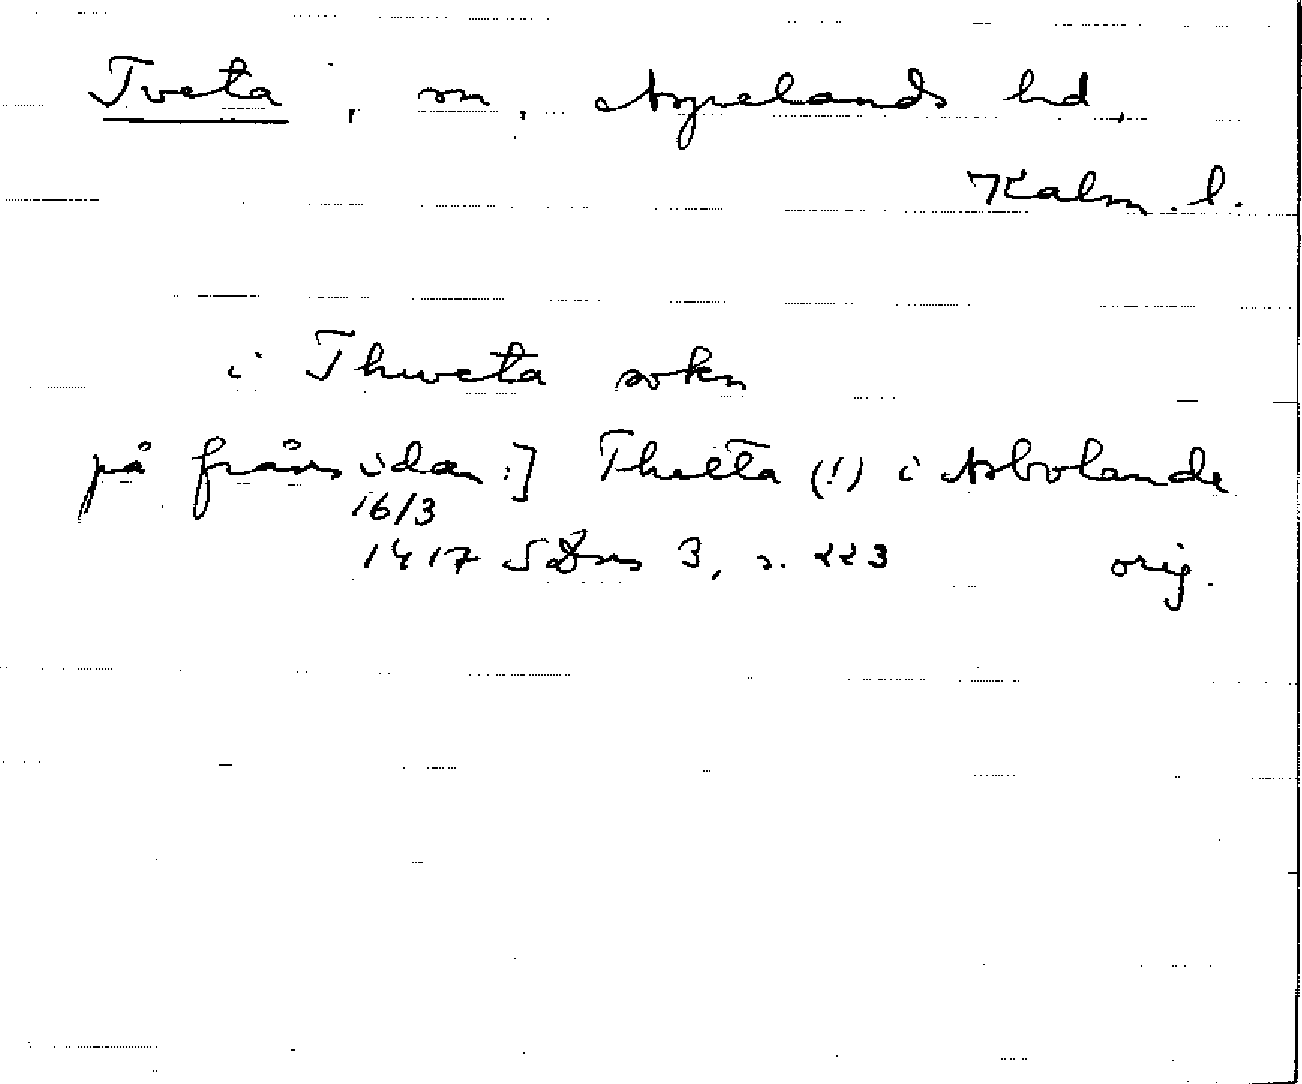 Tveta, sn, Aspelands hd,
Kalm. l.
i Thweta sokn
på frånsidan:] Thetta (!) i Asbolande
16/3
1417 SDns 3, s. 223 orig.